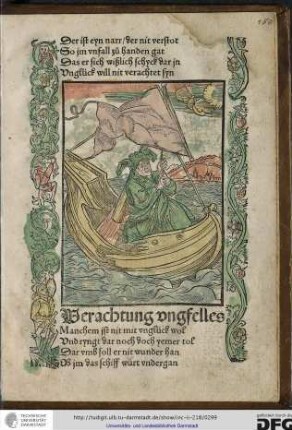 Der ist eyn narr/der nit verstot
So jm vnfall zů handen gat
Das er sich wißlich schyck dar jn
Vnglück will nit verachtet syn
Verachtung vngfelles
Manchem ist nit mit vnglück wol
Vnd ryngt dar noch doch yemer tol
Dar vmb soll er nit wunder han
Ob jm das schiff würt vndergan
http://tudigit.ulb.tu-darmstadt.de/show/inc-ii-218/0299
Universitäts- und Landesbibliothek Darmstadt
TECHNISCHE
UNIVERSITÄT
DARMSTADT
gefördert durch die
DFG